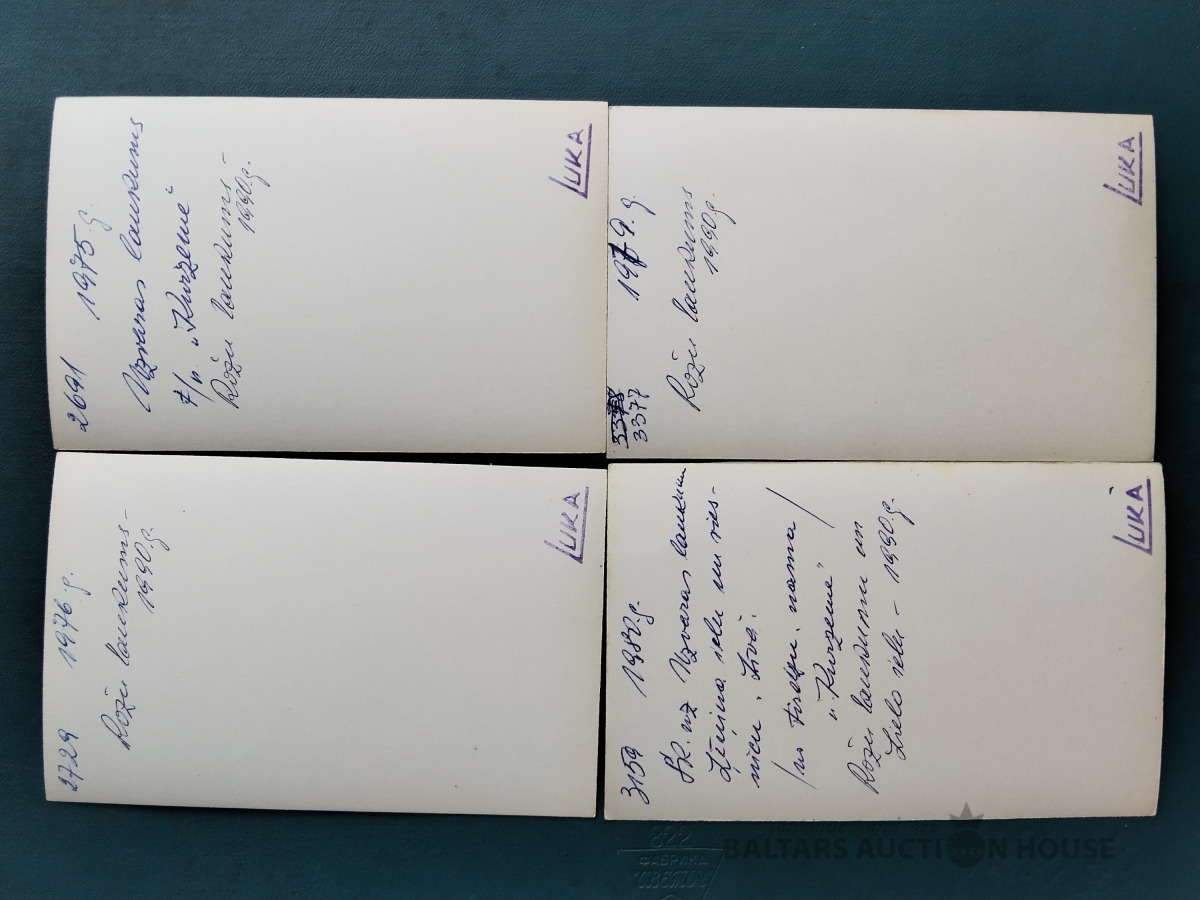 2691 1975 g.
Uzvaras laukums
t/n. „Kurzeme"
Rožu laukums -
1990.g.
LUKA
3377
1979. g.
Rožu laukums
1990g.
LUKA
2729 1976 g.
Rožu laukums -
1990.g.
LUKA
3159 1980.g.
Sk. uz Uzvaras laukumu
Ļeņina ielu un vies-
nīcu „Līva"
/no tirdzn. nama/
„Kurzeme"
Rožu laukumu un
Lielo ielu - 1990.g.
LUKA
822
ФАБРИКА
СВЕТОЧ
BALTARS AUCTION HOUSE